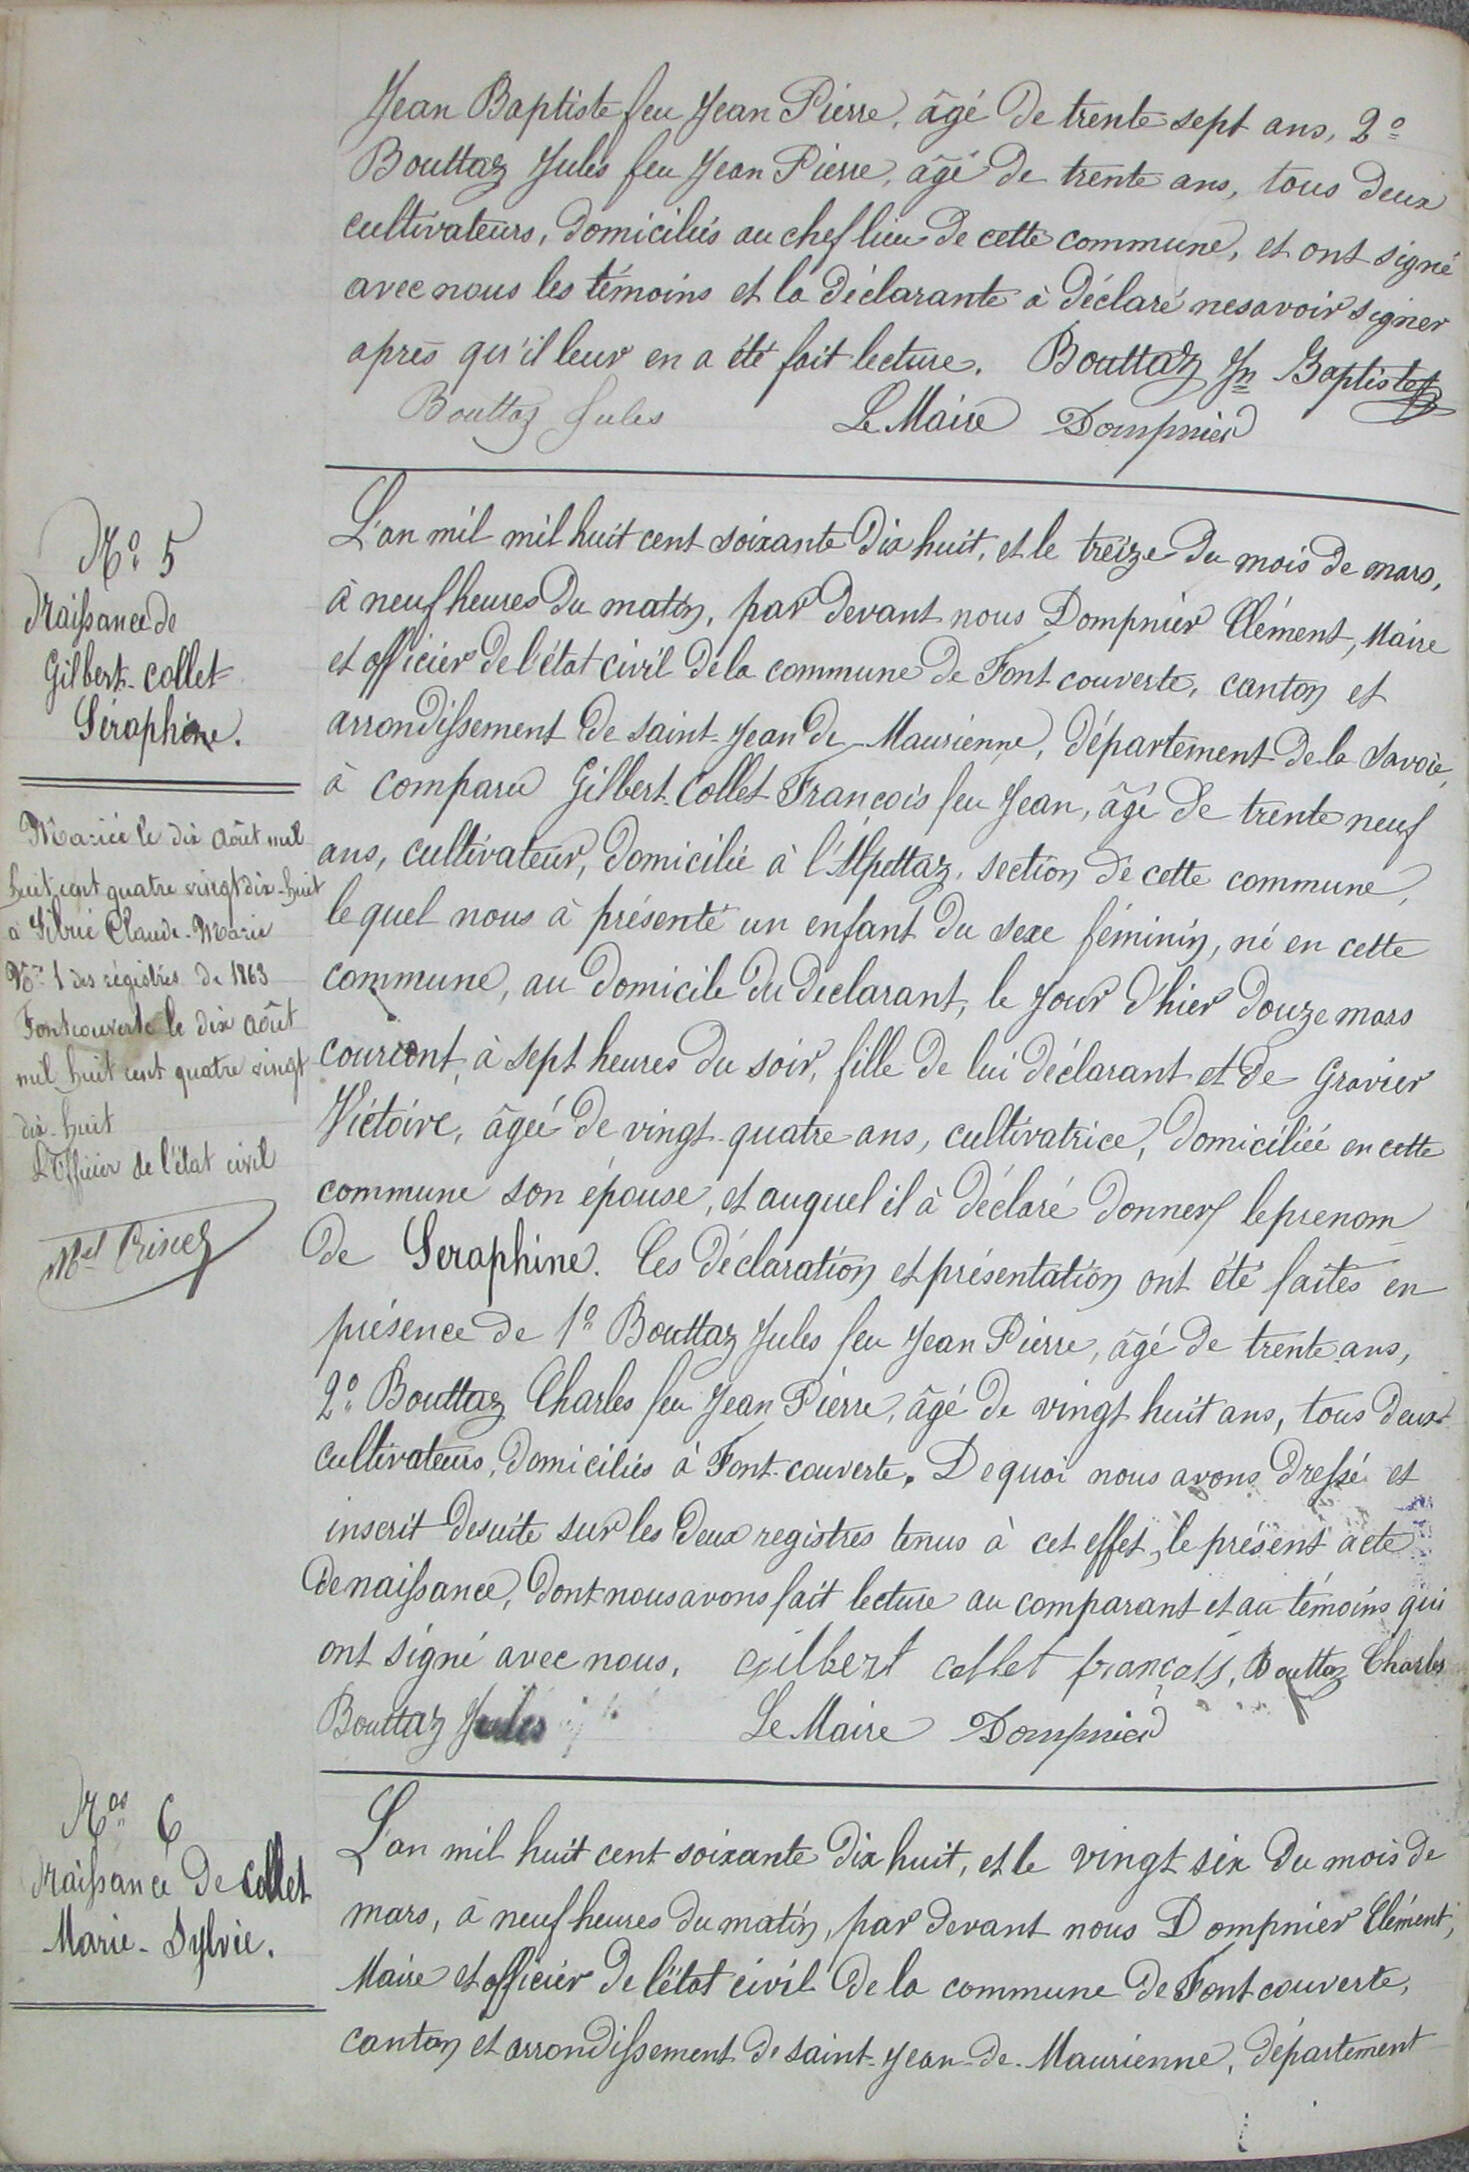 Jean Baptiste feu Jean Pierre, âgé de trente sept ans, 2º
Bouttaz Jules feu Jean Pierre, âgé de trente ans, tous deux
cultivateurs, domiciliés au chef lieu de cette commune, et ont signé
avec nous les témoins et la déclarante à déclaré ne savoir signer
après qu'il leur en a été fait lecture. Bouttaz Jn Baptiste
Bouttaz Jules Le Maire Dompnier
Nº 5
Naissance de
Gilbert-Collet
Séraphine.
Mariée le dix Août mil
huit cent quatre vingt dix-huit
à Sibué Claude-Marie
Nº 1 des régistres de 1863
Fontcouverte le dix Août
mil huit cent quatre vingt
dix-huit
L'Officier de l'état civil
L'an mil mil huit cent soixante dix huit, et le treize du mois de mars,
à neuf heures du matin, par devant nous Dompnier Clément, Maire
et officier de l'état civil de la commune de Font couverte, canton et
arrondissement de saint-Jean de Maurienne, département de la Savoie,
à comparu Gilbert-Collet François feu Jean, âgé de trente neuf
ans, cultivateur, domicilié à l'Alpettaz, section de cette commune,
le quel nous à présenté un enfant du sexe féminin, né en cette
commune, au domicile du déclarant, le jour d'hier douze mars
courront, à sept heures du soir, fille de lui déclarant et de Gravier
Victoire, âgée de vingt-quatre ans, cultivatrice, domiciliée en cette
commune son épouse, et auquel il à déclaré donner le prenom
de Seraphine. Ces déclaration et présentation ont été faites en
présence de 1º Bouttaz Jules feu Jean Pierre, âgé de trente ans,
2º Bouttaz Charles feu Jean Pierre, âgé de vingt huit ans, tous deux
cultivateurs, domiciliés à Font-couverte. De quoi nous avons dressé et
inscrit de suite sur les deux registres tenus à cet effet, le présent acte
de naissance, dont nous avons fait lecture au comparant et au témoins qui
ont signé avec nous. gilbert collet françois, Bouttaz Charles
Bouttaz Jules Le Maire Dompnier
Nos 6
Naissance de Collet
Marie-Sylvie.
L'an mil huit cent soixante dix huit, et le vingt six du mois de
mars, à neuf heures du matin, par devant nous Dompnier Clément,
Maire et officier de l'état civil de la commune de Font couverte,
canton et arrondissement de saint-Jean-de-Maurienne, département